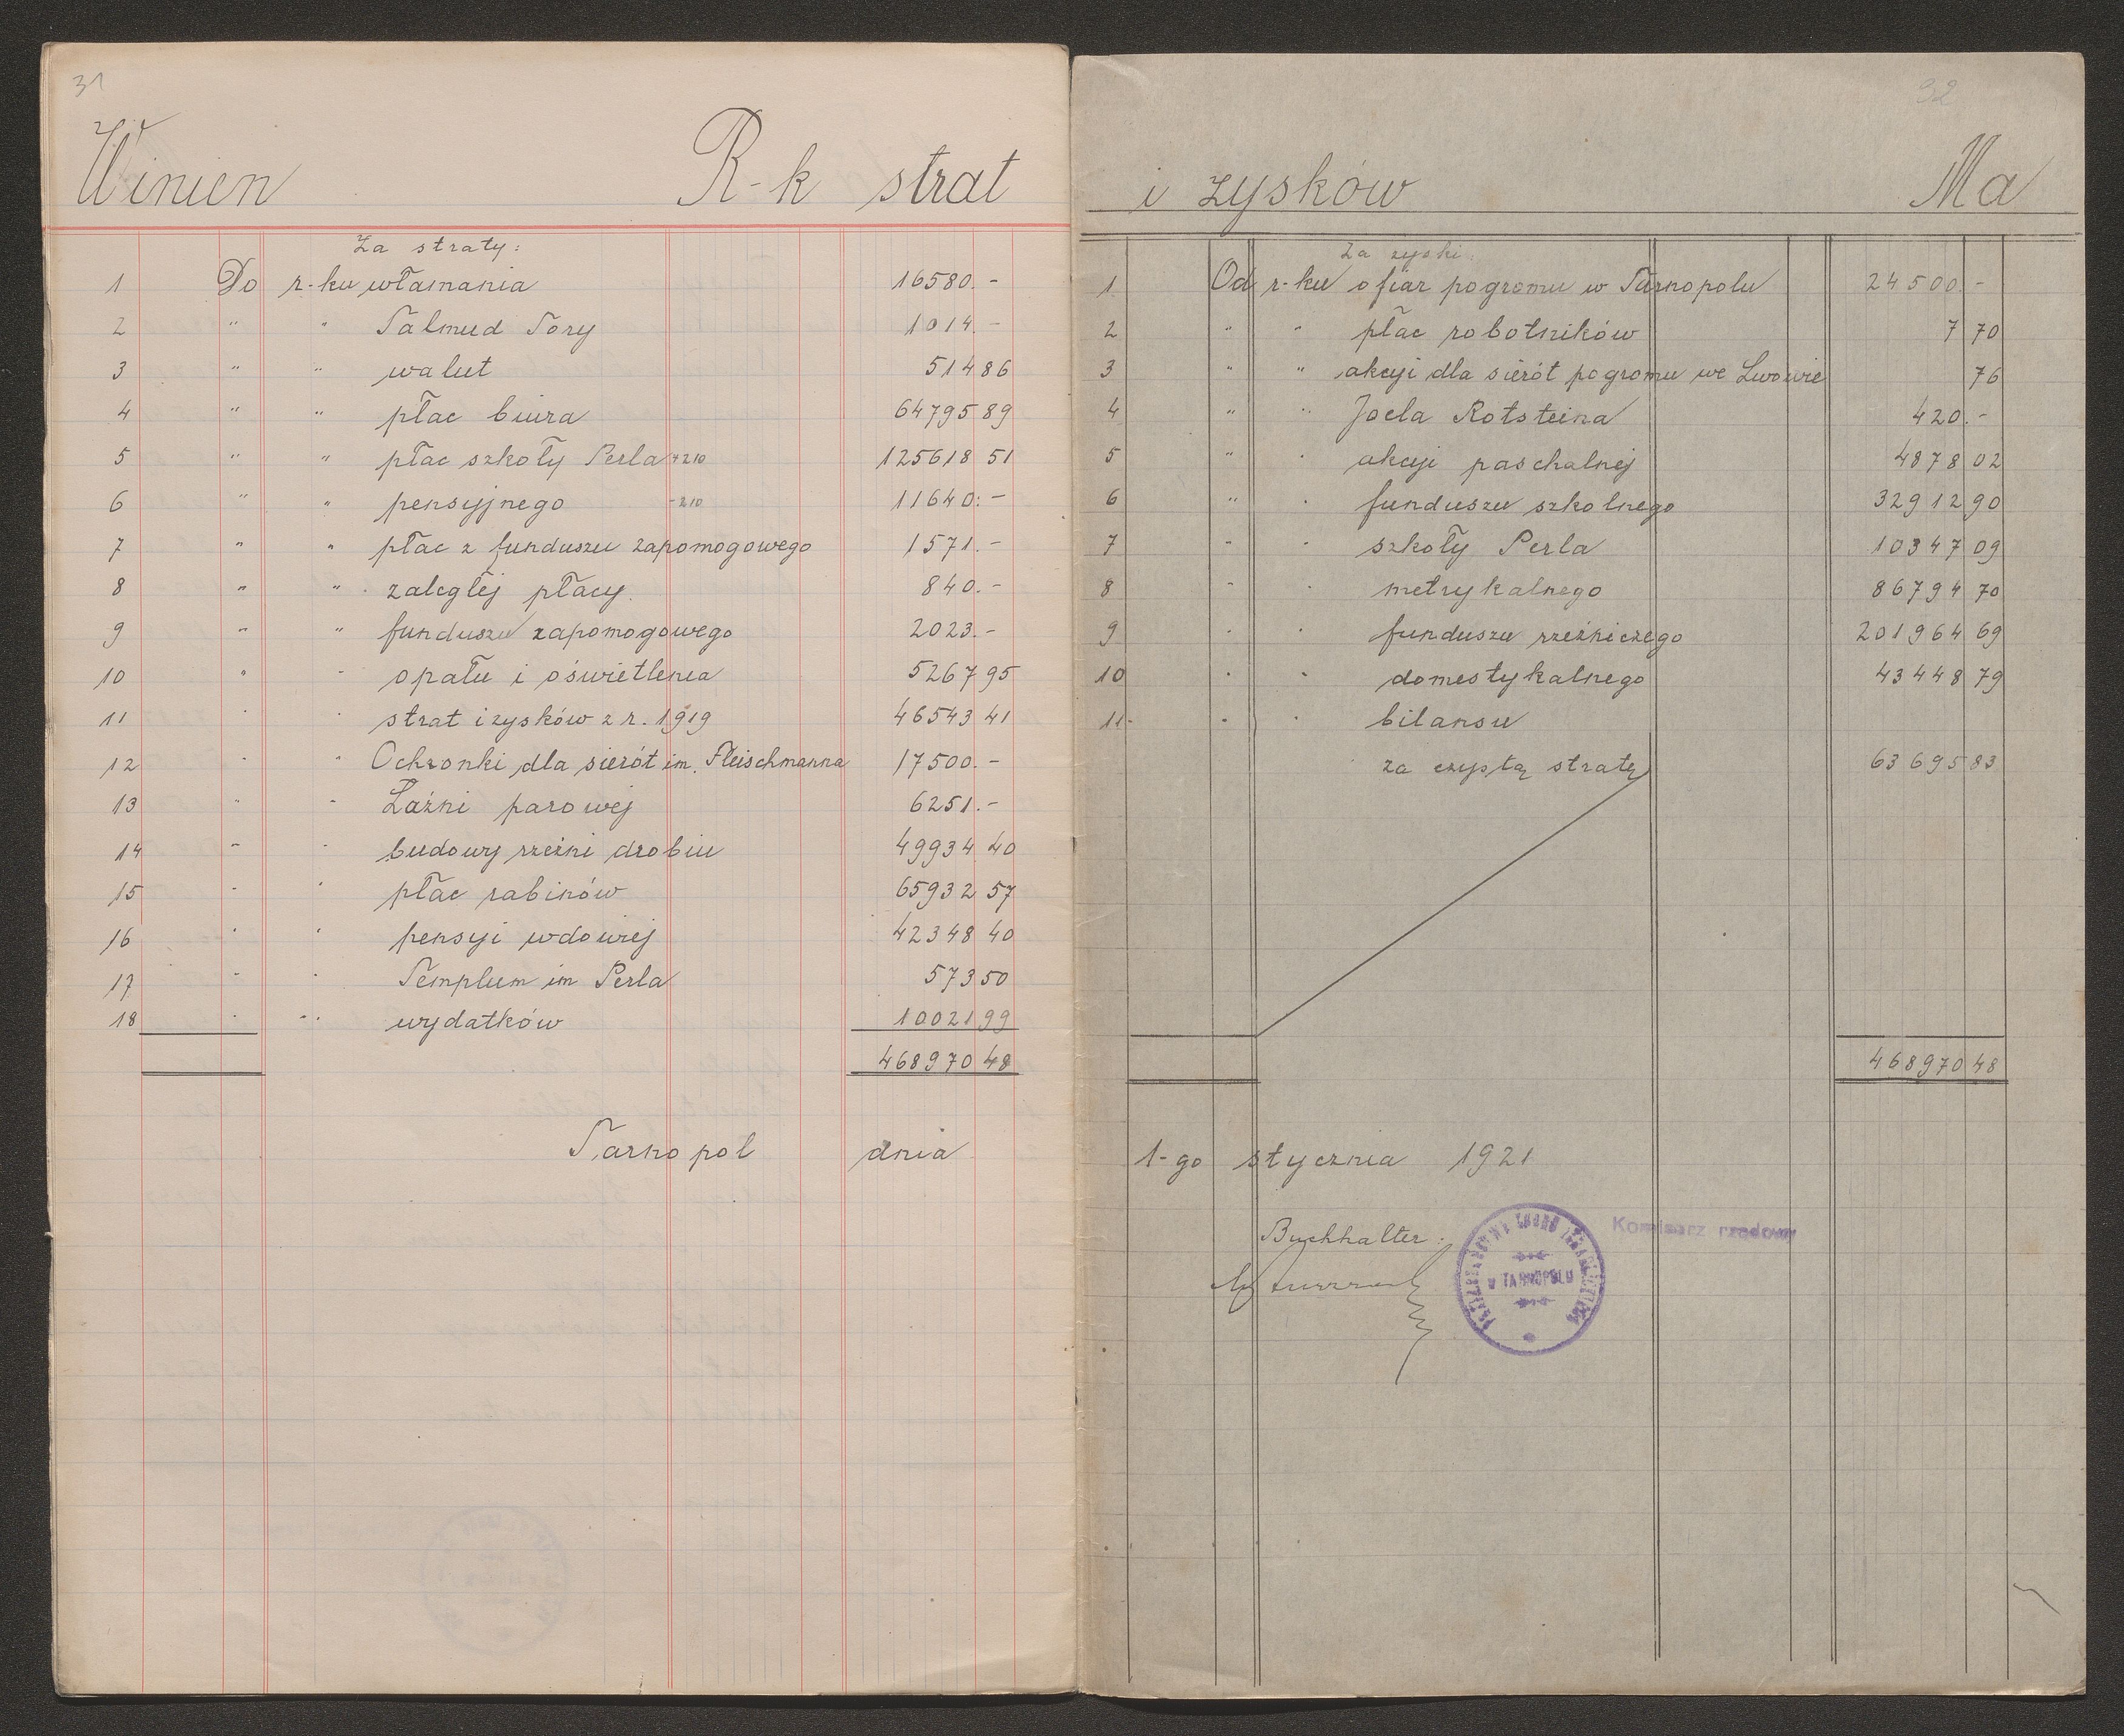 31
Winien R-k strat
Za straty:
1 Do r-ku włamania 16580.-
2 " " Talmud Tory 1014.-
3 " " walut 514 86
4 " " płac biura 64795 89
5 " " płac szkoły Perla +210 125618 51
6 " " pensyjnego -210 11640.-
7 " " płac z funduszu zapomogowego 1571.-
8 " " zaległej płacy 840.-
9 " " funduszu zapomogowego 2023.-
10 " " opału i oświetlenia 5267 95
11 " " strat i zysków z r. 1919 46543 41
12 " " Ochronki dla sierót im. Fleischmanna 17500.-
13 " " Łaźni parowej 6251.-
14 " " budowy rzeźni drobiu 49934 40
15 " " płac rabinów 65932 57
16 " " pensyi wdowiej 42348 40
17 " " Templum im Perla 573 50
18 " " wydatków 10021 99
468970 48
Tarnopol dnia
32
i zysków Ma
Za zyski:
1 Od r-ku ofiar pogromu w Tarnopolu 24500.-
2 " " płac robotników 7 70
3 " " akcyi dla sierót pogromu we Lwowie 76
4 " " Joela Rotsteina 420.-
5 " " akcyi paschalnej 4878 02
6 " " funduszu szkolnego 32912 90
7 " " szkoły Perla 10347 09
8 " " metrykalnego 86794 70
9 " " funduszu rzeźniczego 201964 69
10 " " domestykalnego 43448 79
11 " " bilansu
za czystą stratę 63695 83
468970 48
1-go stycznia 1921
Buchhalter:
Komisarz rządowy
W TARNOPOLU